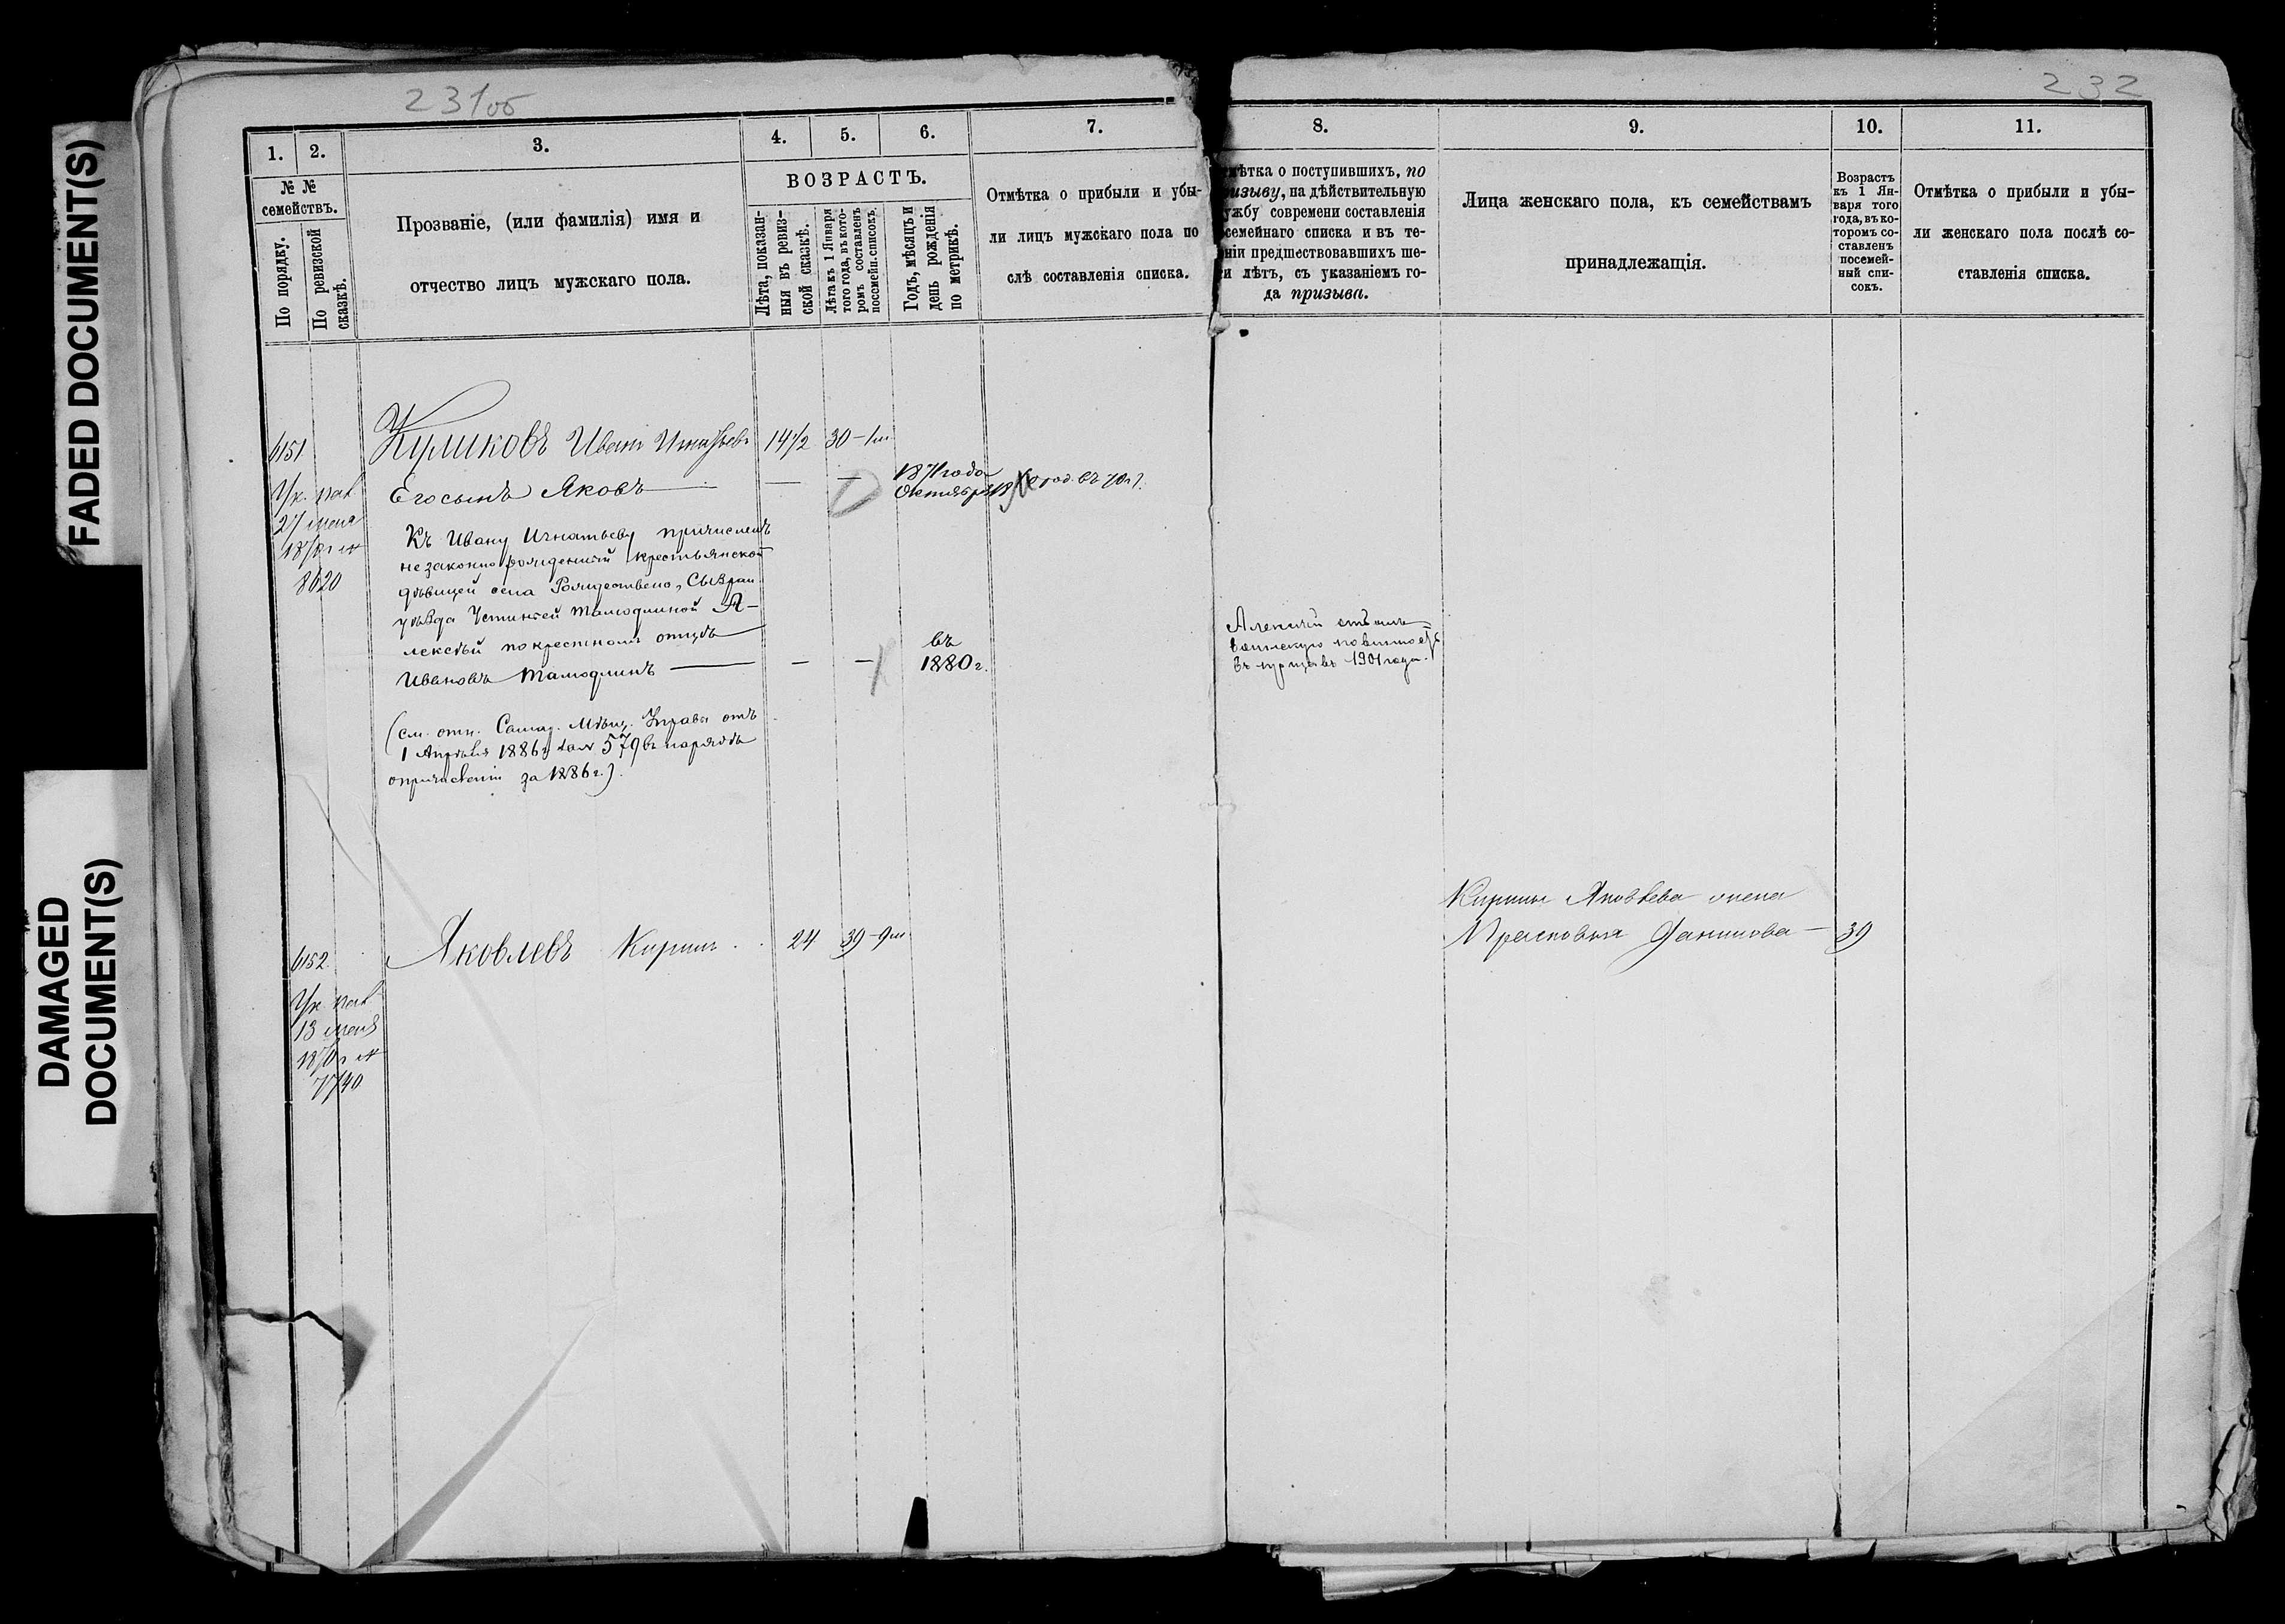 FADED DOCUMENT(S)
DAMAGED
DOCUMENT(S)
231об
232
1.
2.
3.
4.
5.
6.
7.
8.
9.
10.
11.
№ №
семействъ.
По порядку.
По ревизской
сказкѣ.
Прозваніе, (или фамилія) имя и
отчество лицъ мужскаго пола.
ВОЗРАСТЪ.
Лѣта, показан-
ныя въ ревиз-
ской сказкѣ.
Лѣта къ 1 Января
того года, въ кото-
ромъ составленъ
посемейн. списокъ.
Годъ, мѣсяцъ и
день рожденія
по метрикѣ.
Отмѣтка о прибыли и убы-
ли лицъ мужскаго пола по
слѣ составленія списка.
мѣтка о поступившихъ, по
ризыву, на дѣйствительную
ужбу современи составленія
семейнаго списка и въ те-
ніи предшествовавшихъ ше-
и лѣтъ, съ указаніемъ го-
да призыва.
Лица женскаго пола, къ семействамъ
принадлежащія.
Возрастъ
къ 1 Ян-
варя того
года, въ ко-
торомъ со-
ставленъ
посемей-
ный спи-
сокъ.
Отмѣтка о прибыли и убы-
ли женскаго пола послѣ со-
ставленія списка.
6151
Куликовъ Иванъ Игнатьевъ 14 1/2 30-1м
Ук. пал
27 мая
8620
Его сынъ Яковъ — — — 1871 года
Октября
Къ Ивану Игнатьеву причисленъ
незаконнорожденный крестьянской
дѣвицей села Рождествено, Сызран.
уѣзда Устиньей Тамодлиной А-
лексѣй по крестномъ отцѣ
Ивановъ Тамодлинъ — — — въ
1880 г.
(см. отн. Самар. Мѣщ. Управы отъ
1 Апрѣля 1886 г за № 579 въ нарядѣ
о причисленіи за 1886 г.).
Алексѣй
воинскую повинность
въ 1901 года.
6152
Яковлевъ Кирилъ 24 39-9м
Ук. пал
13 мая
7740
Кирилы Яковлева жена
Прасковья Данилова — 39